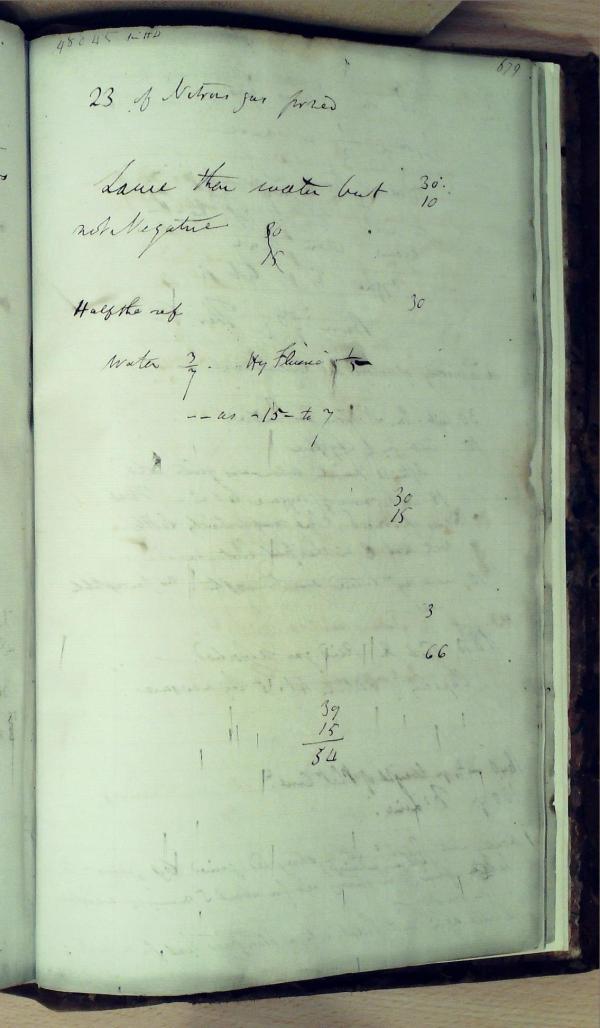 679
23 of Nitrous gas
than water but 30.
10
not Negative 80
15
Half the ref 30
water 3/7. Hy Fluoric
-- as - 15 - to 7
30
15
3
66
39
15
54